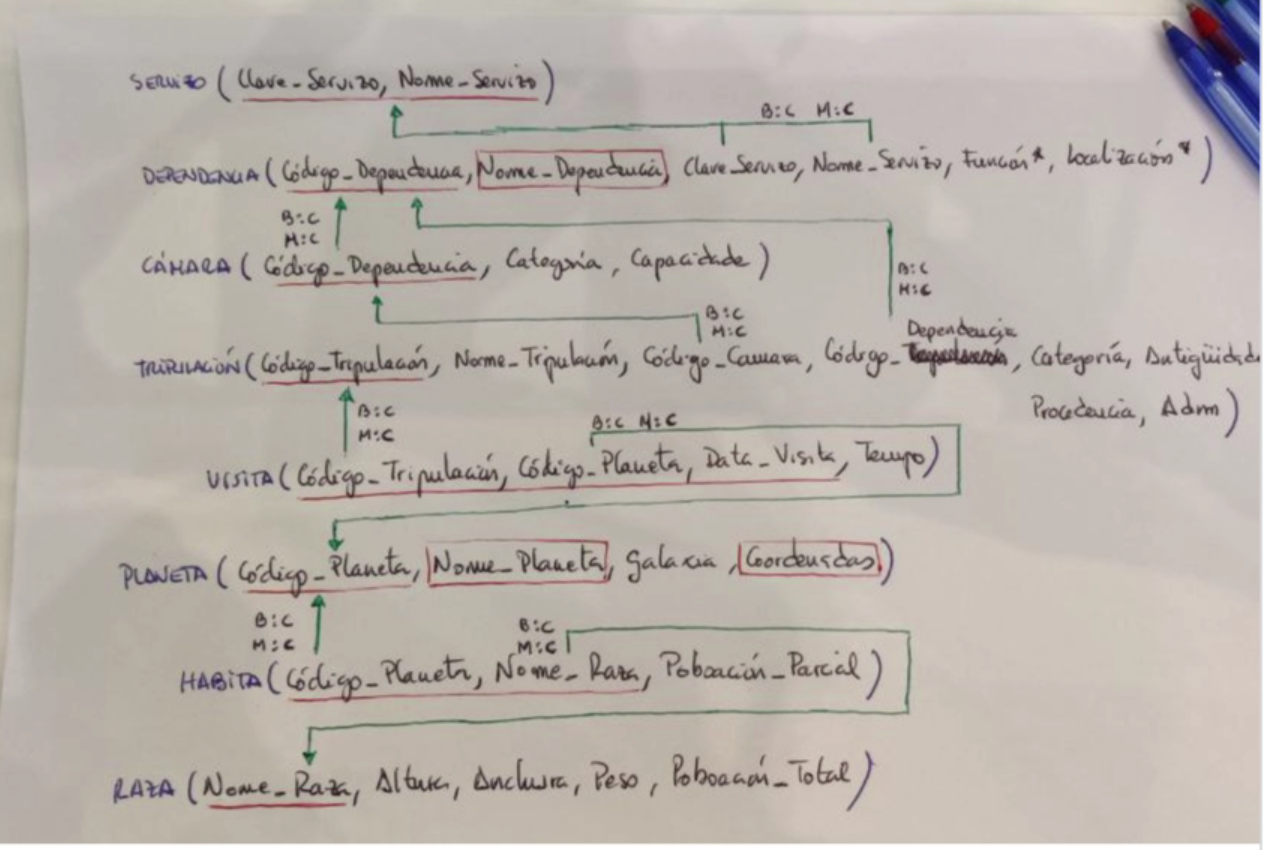 SERVIZO ( Clave_Servizo, Nome_Servizo )
B:C M:C
DEPENDENCIA ( Código_Dependencia, Nome_Dependencia, Clave_Servizo, Nome_Servizo, Función*, Localización* )
B:C
M:C
CÁMARA ( Código_Dependencia, Categoría, Capacidade )
B:C
M:C
B:C
M:C
Dependencia
TRIPULACIÓN ( Código_Tripulación, Nome_Tripulación, Código_Camara, Código_ , Categoría, Antigüidade
Procedencia, Adm )
B:C
M:C
B:C M:C
VISITA ( Código_Tripulación, Código_Planeta, Data_Visita, Tempo )
PLANETA ( Código_Planeta, Nome_Planeta, Galaxia, Coordenadas )
B:C
M:C
B:C
M:C
HABITA ( Código_Planeta, Nome_Raza, Poboación_Parcial )
RAZA ( Nome_Raza, Altura, Anchura, Peso, Poboación_Total )